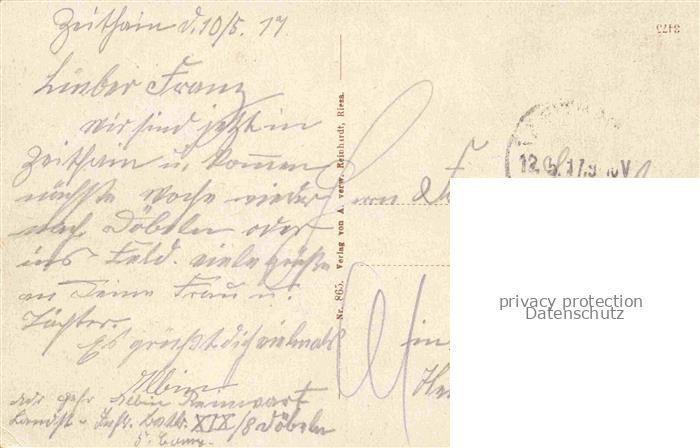 Zeithain d. 10/5. 17
Lieber Franz
wir sind jetzt in
Zeithain u. kommen
nächste Woche wieder
nach Döbeln oder
ins Feld. viele grüße
an Deine Frau u.
Töchter.
Es grüßt dich vielmals
Albin
Albin Reinwart
Landst. Inftr. Batl. XIX/8 Döbeln
5. Comp.
Nr. 865. Verlag von A. verw. Reinhardt, Riesa.
3475
Herrn
in
12.5.17.9-10V
privacy protection
Datenschutz